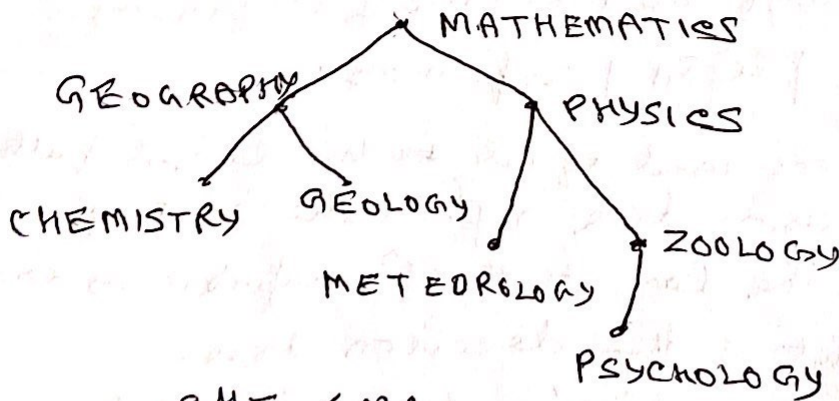 MATHEMATICS
GEOGRAPHY
PHYSICS
CHEMISTRY
GEOLOGY
ZOOLOGY
METEOROLOGY
PSYCHOLOGY